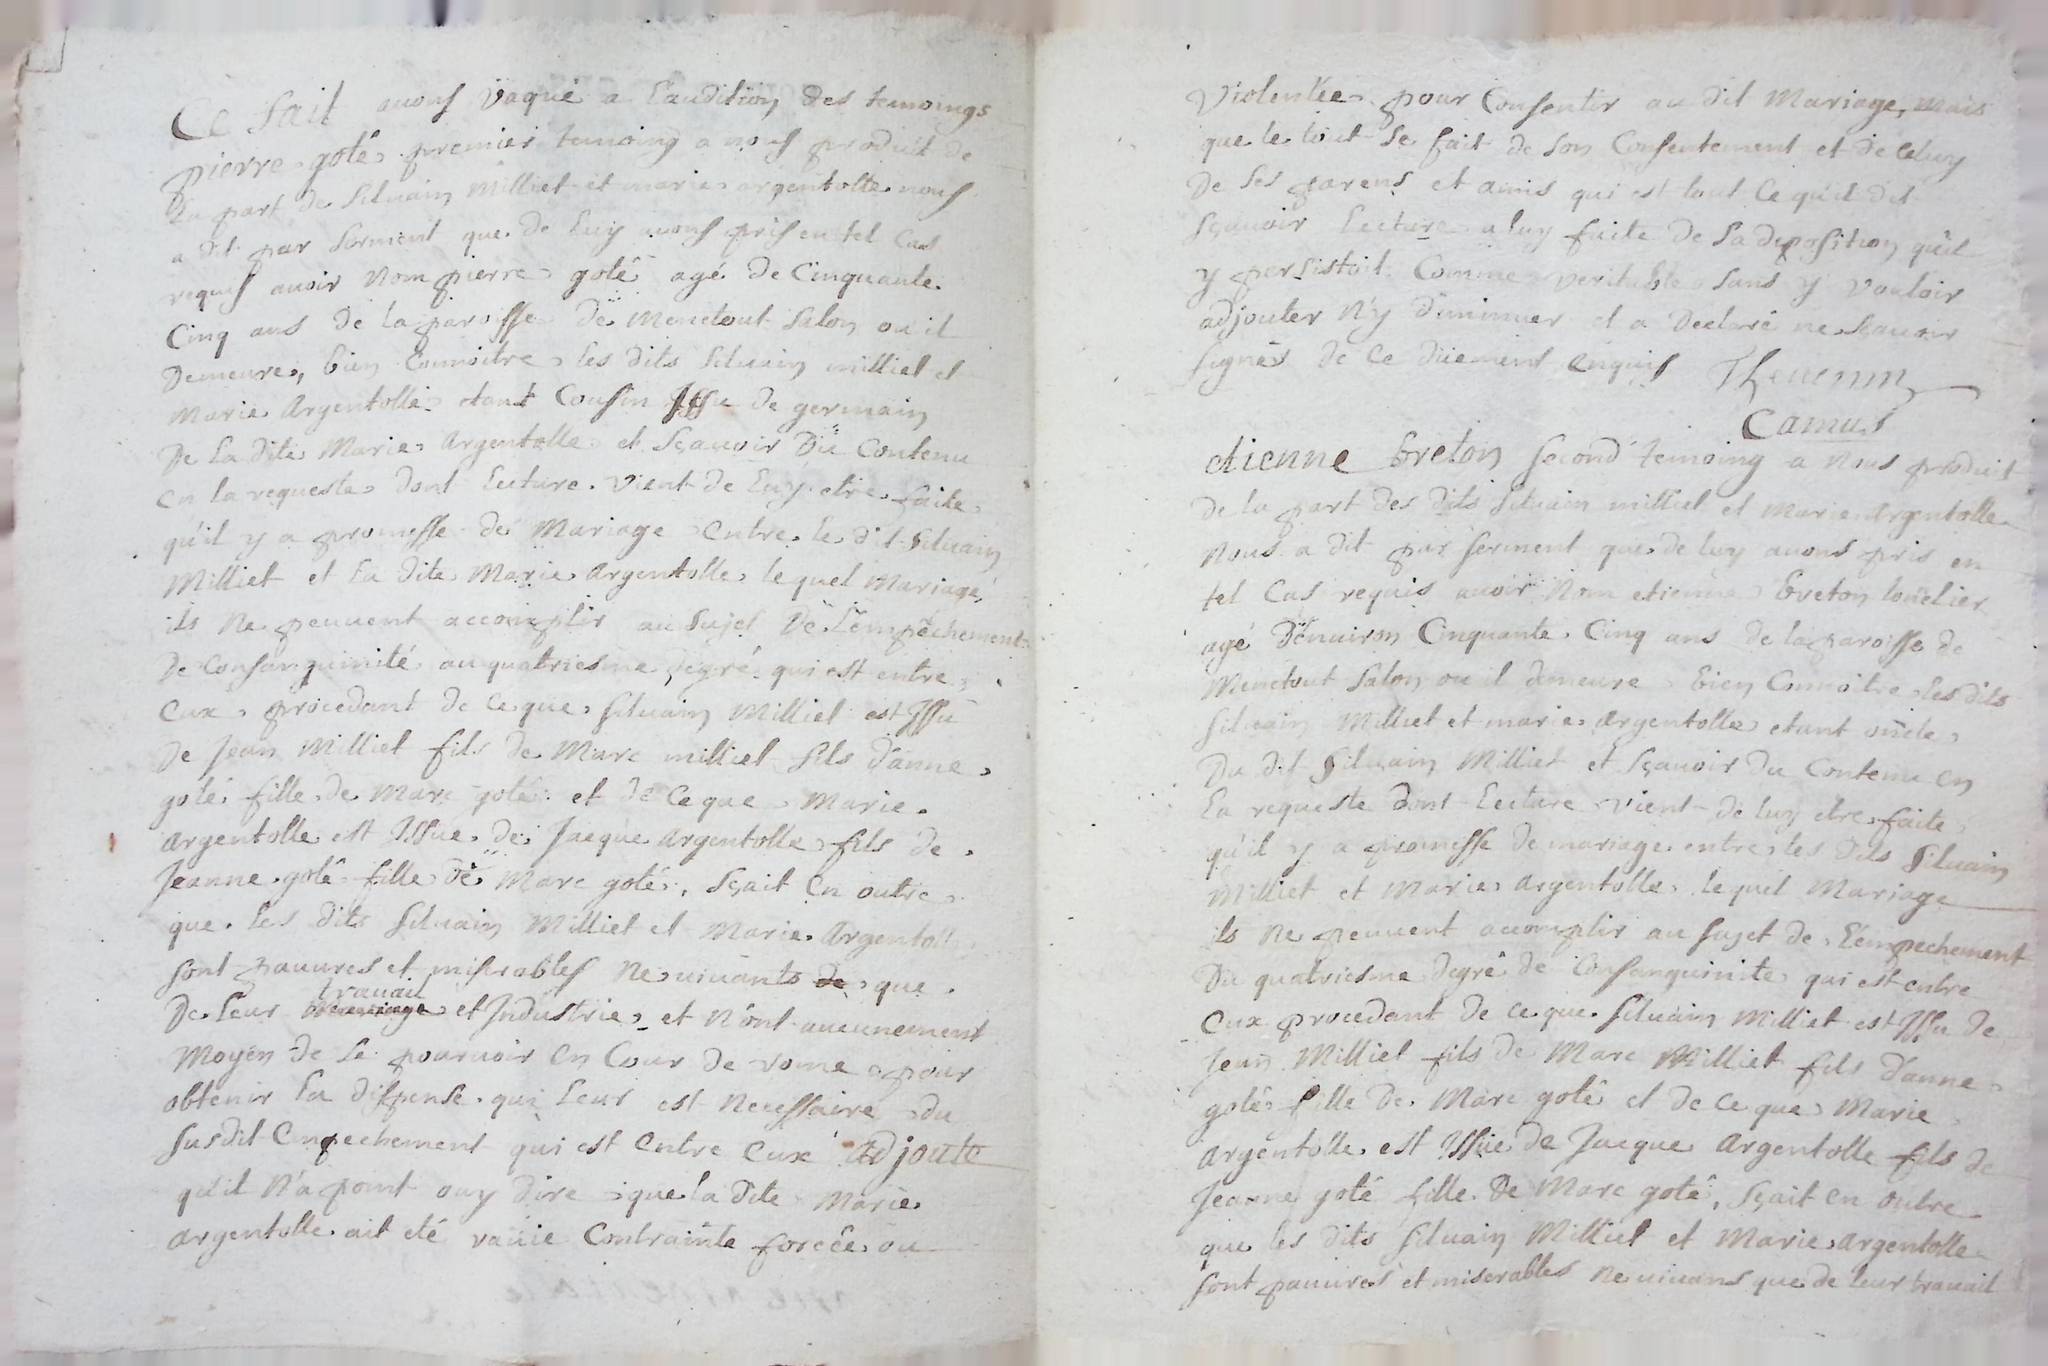 Ce fait avons vaqué a l'audition des temoings
pierre goté premier temoing a nous produit de
la part de Silvain Milliet et marie argentolle nous
a dit par serment que de luy avons pris en tel cas
requis avoir nom pierre goté agé de Cinquante
Cinq ans de la paroisse de menetout Salon ou il
Demeure, bien Connoitre les dits Silvain milliet et
Marie Argentolle etant Cousin Issu de germain
De La dite Marie Argentolle et sçavoir Du Contenu
en la requeste dont lecture vient de luy etre faite
qu'il y a promesse de Mariage entre le dit Silvain
Milliet et la dite Marie Argentolle lequel Mariage
ils ne peuvent accomplir au sujet De L'empêchement
De Consanguinité au quatriesme degré qui est entre
eux procedant de ce que Silvain Milliet est Issu
De Jean Milliet fils de Marc milliet fils d'anne
goté fille de Marc goté et de ce que Marie
argentolle est Issüe de Jacque argentolle fils de
Jeanne goté fille de Marc goté, sçait en outre
que les dits Silvain Milliet et Marie Argentolle
sont pauvres et miserables ne vivants de que
travail
De leur et Industrie et n'ont aucunement
Moyen de se pourvoir en Cour de rome pour
obtenir la dispense qui leur est necessaire du
susdit empechement qui est entre eux Adjoute
qu'il n'a point ouy dire que la dite Marie
argentolle ait eté ravie Contrainte forcée ou
Violentée pour Consentir au dit Mariage, mais
que le tout se fait de son Consentement et de celuy
de ses parens et amis qui est tout ce qu'il dit
sçavoir lecture a luy faite de sa deposition qu'il
y persistoit Comme veritable sans y vouloir
adjouter n'y diminuer et a declaré ne sçavoir
signer de ce düement enquis Thevenin
Camus
etienne breton second temoing a nous produit
de la part des dits Silvain milliet et Marie Argentolle
nous a dit par serment que de luy avons pris en
tel cas requis avoir nom etienne breton
agé d'environ Cinquante Cinq ans de la paroisse de
Menetout Salon ou il demeure bien Connoitre les dits
Silvain Milliet et marie Argentolle etant oncle
Du dit Silvain Milliet et sçavoir du Contenu en
la requeste dont lecture vient de luy etre faite
qu'il y a promesse de mariage entre les dits Silvain
Milliet et Marie Argentolle lequel Mariage
ils ne peuvent acomplir au sujet de l'empechement
Du quatriesme degré de Consanguinité qui est entre
eux procedant de ce que Silvain Milliet est Issu de
Jean Milliet fils de Marc Milliet fils d'anne
goté fille de Marc goté et de ce que Marie
argentolle est Issüe de Jacque Argentolle fils de
Jeanne goté fille de Marc goté, sçait en outre
que les dits Silvain Milliet et Marie Argentolle
sont pauvres et miserables ne vivans que de leur travail